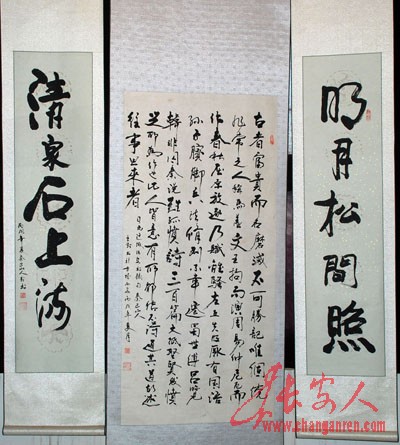 明月松間照
古者富貴而名磨滅不可勝記唯倜儻
非常之人稱焉蓋文王拘而演周易仲尼厄而
作春秋屈原放逐乃賦離騷左丘失明厥有國語
孫子臏腳兵法修列不韋遷蜀世傳呂覽
韓非囚秦說難孤憤詩三百篇大抵聖賢發憤
之所為作也此人皆意有所鬱結不得通其道故述
往事思來者
清泉石上流
長安人
www.changanren.com